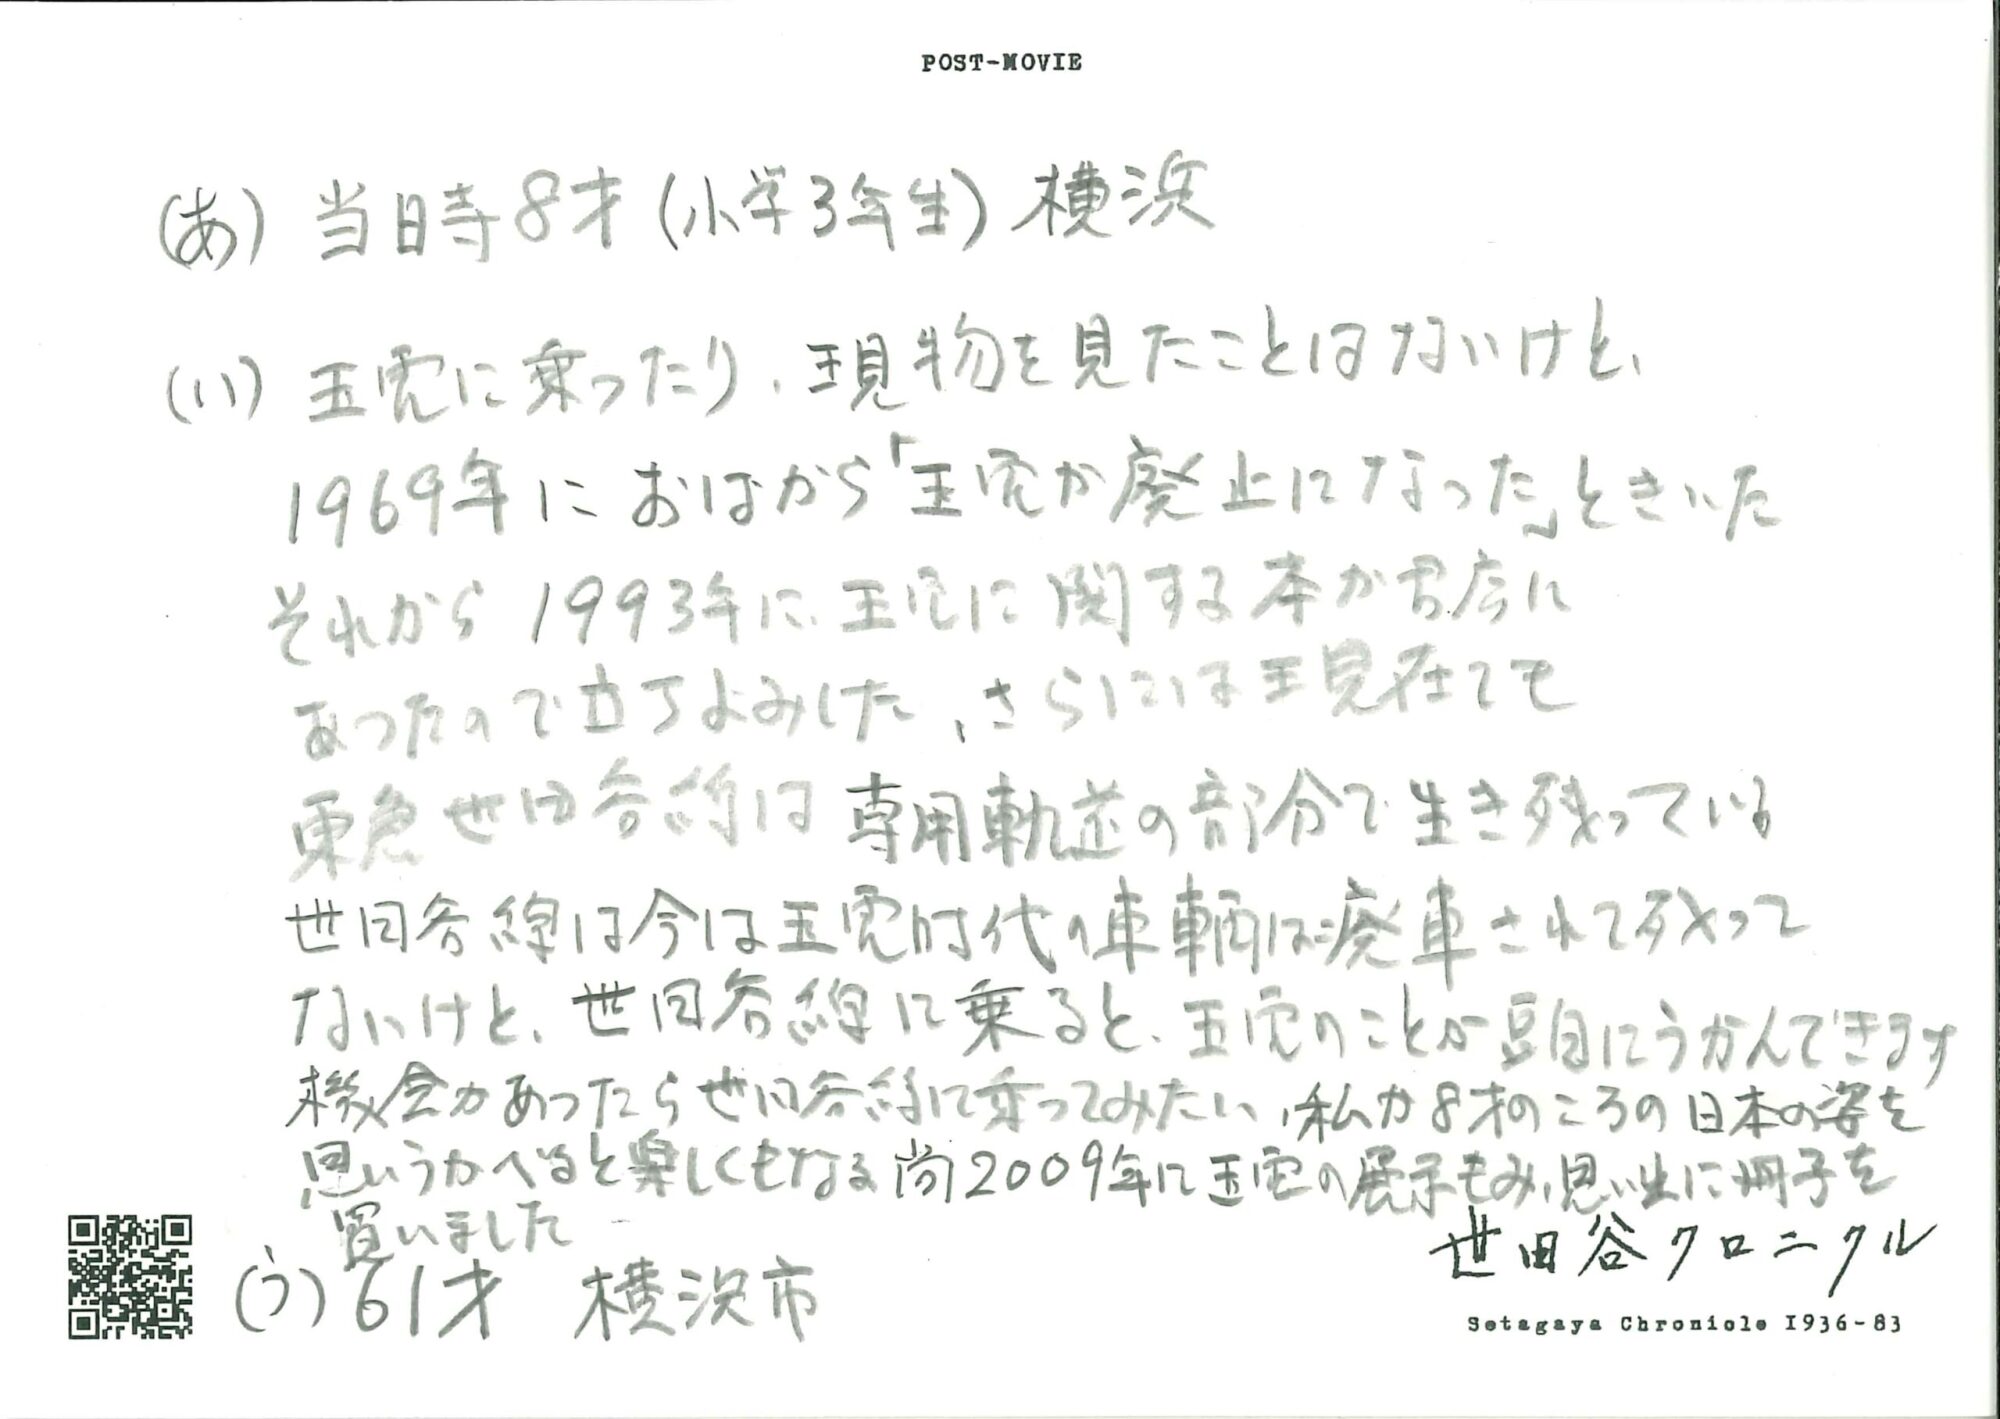 POST-MOVIE
(あ) 当時8才(小学3年生) 横浜
(い) 玉電に乗ったり、現物を見たことはないけど、
1969年におばから「玉電が廃止になった」ときいた
それから1993年に、玉電に関する本が書店に
あったので立ちよみした、さらには現在でも
東急世田谷線は専用軌道の部分で生き残っている
世田谷線は今は玉電時代の車輌は廃車されて残って
ないけど、世田谷線に乗ると、玉電のことが頭にうかんできます
機会があったら世田谷線に乗ってみたい、私が8才のころの日本の姿を
思いうかべると楽しくもなる尚2009年に玉電の展示もみ、思い出に冊子を
買いました
(う) 61才 横浜市
世田谷クロニクル
Setagaya Chronicle 1936-83